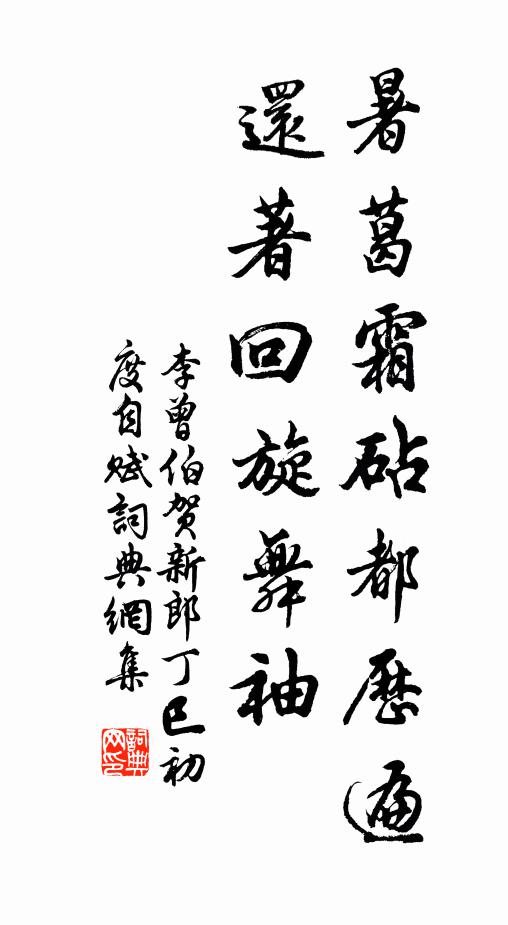 暑葛霜砧都歷遍
還著回旋舞袖
李曾伯賀新郎丁巳初
度自賦詞典網集
詞典網印